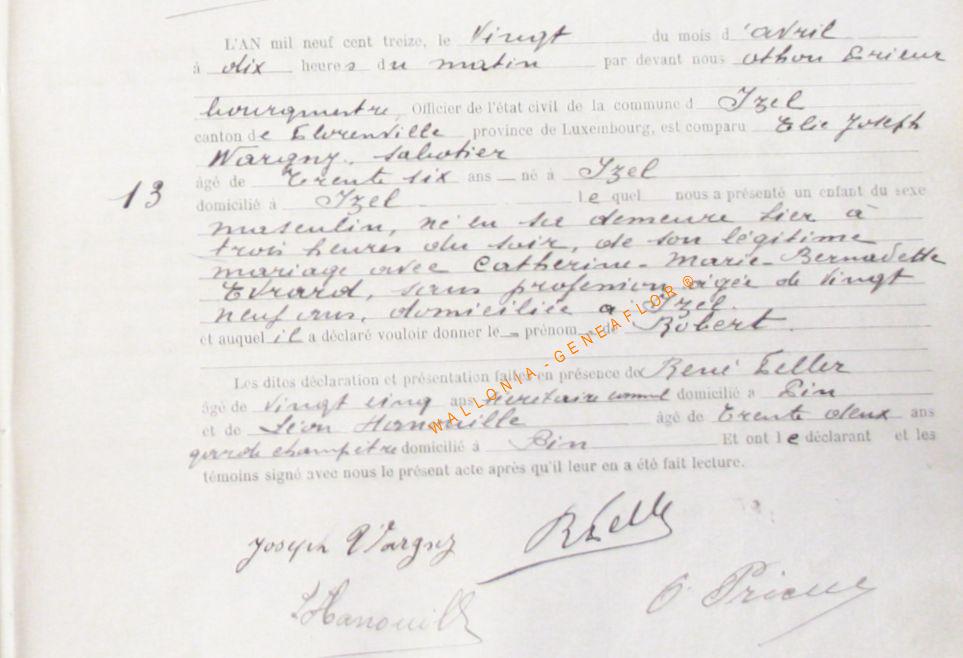 L'AN mil neuf cent treize, le Vingt du mois d'avril
à dix heures du matin par devant nous Othon Prieur
bourgmestre, Officier de l'état civil de la commune d Izel
canton de Florenville province de Luxembourg, est comparu Elie Joseph
Wargny, sabotier
13
âgé de Trente six ans né à Izel
domicilié à Izel lequel nous a présenté un enfant du sexe
masculin, né en sa demeure hier à
trois heures du soir, de son légitime
mariage avec Catherine-Marie-Bernadette
Evrard, sans profession âgée de vingt
neuf ans, domiciliée à Izel.
et auquel il a déclaré vouloir donner le prénom de Robert.
Les dites déclaration et présentation faites en présence de René Feller
âgé de vingt cinq ans secrétaire comml domicilié à Pin
et de Léon Hanouille âgé de Trente deux ans
garde champêtre domicilié à Pin Et ont le déclarant et les
témoins signé avec nous le présent acte après qu'il leur en a été fait lecture.
Joseph Wargny RFelle
LHanouille O Prieur
WALLONIA - GENEAFLOR ®